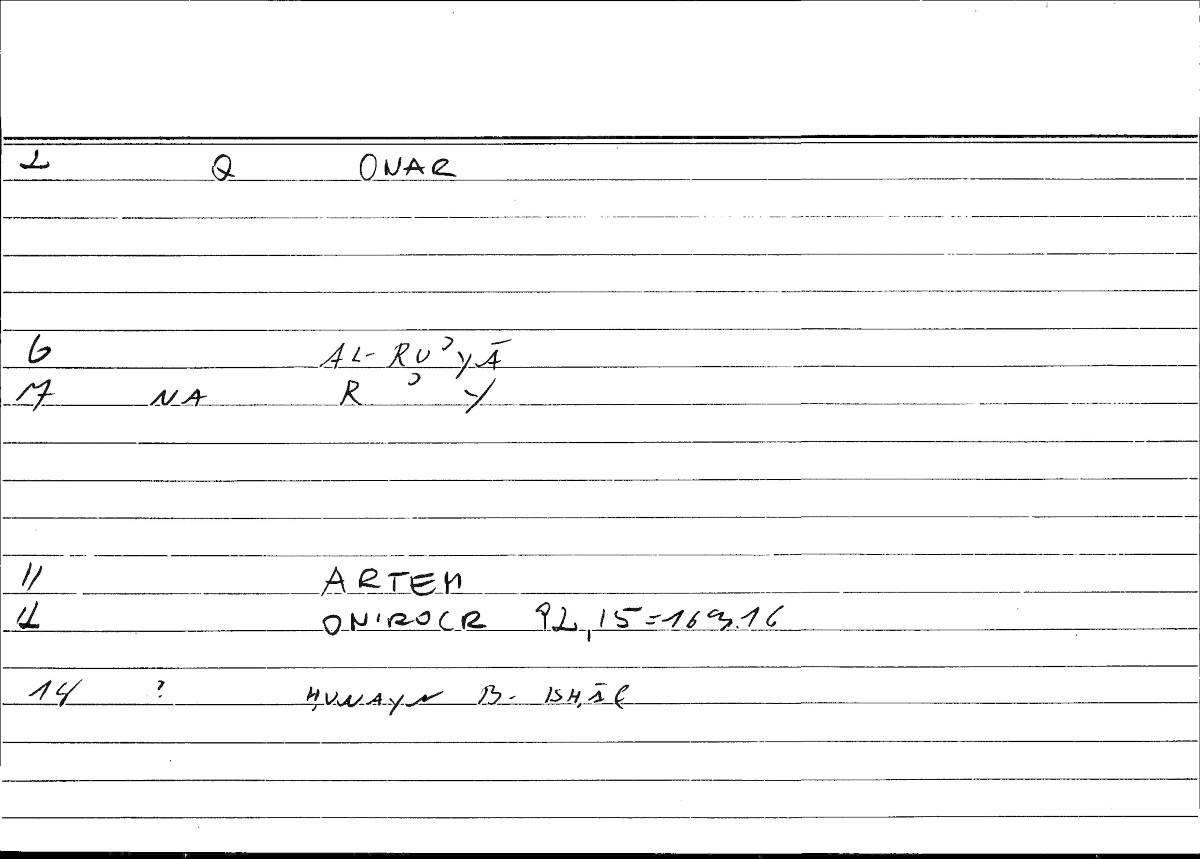 2 Q ONAR
6 AL-RUʾYĀ
7 NA R ʾ Y
11 ARTEM
12 ONIROCR 92,15=169.16
14 ? ḤUNAYN B- ISḤĀQ